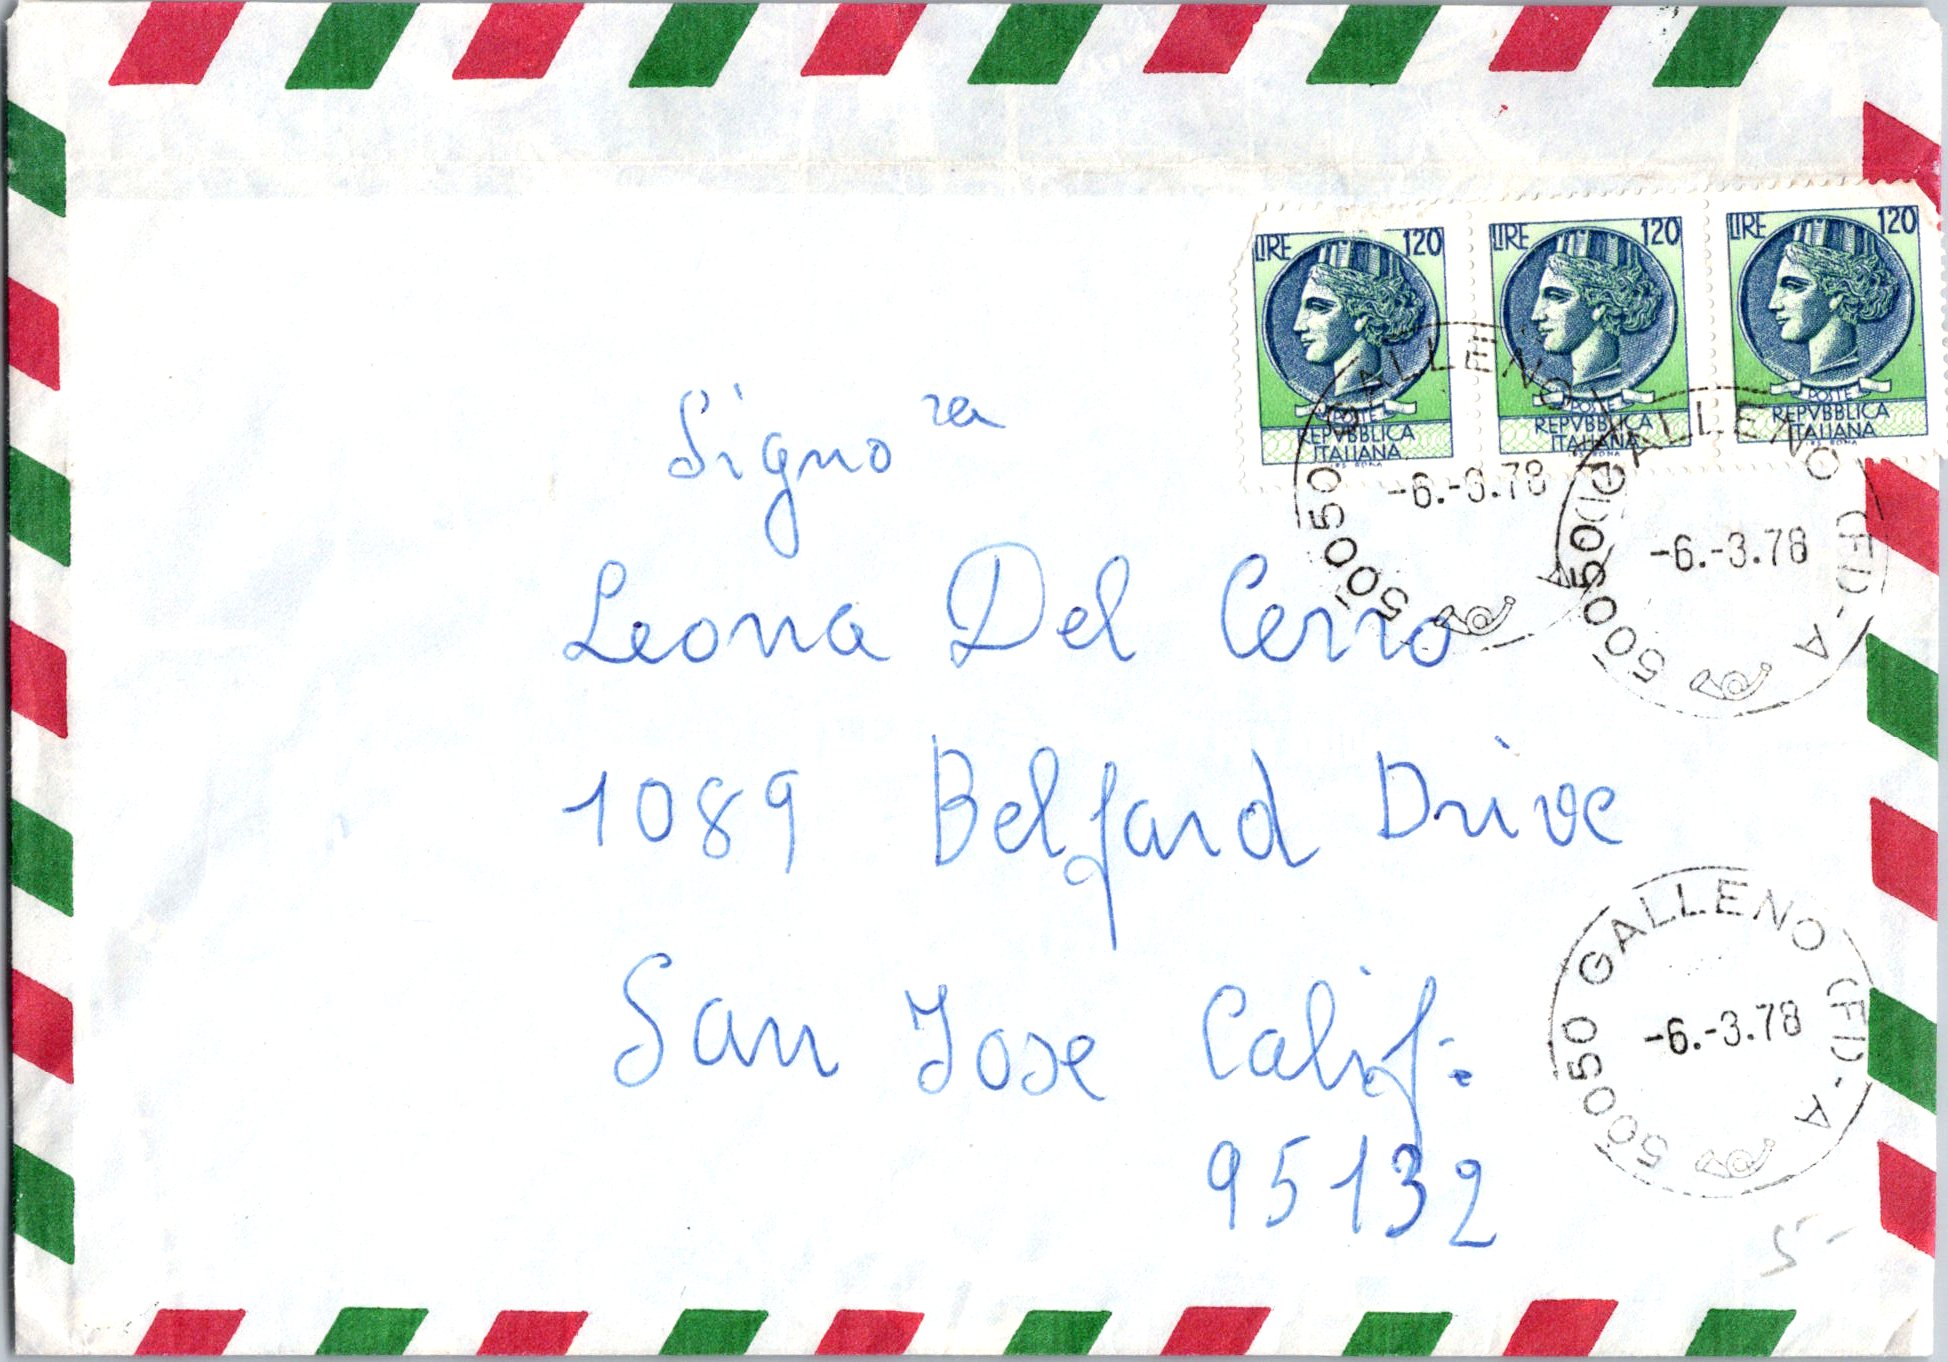 LIRE 120
POSTE
REPVBBLICA
ITALIANA
I.P.S. ROMA
LIRE 120
POSTE
REPVBBLICA
ITALIANA
I.P.S. ROMA
LIRE 120
POSTE
REPVBBLICA
ITALIANA
I.P.S. ROMA
50050 GALLENO (FI) - A
-6.-3.78
50050 GALLENO (FI) - A
-6.-3.78
Signora
Leona Del Cerro
1089 Belfard Drive
San Jose Calif.
95132
50050 GALLENO (FI) - A
-6.-3.78
5-